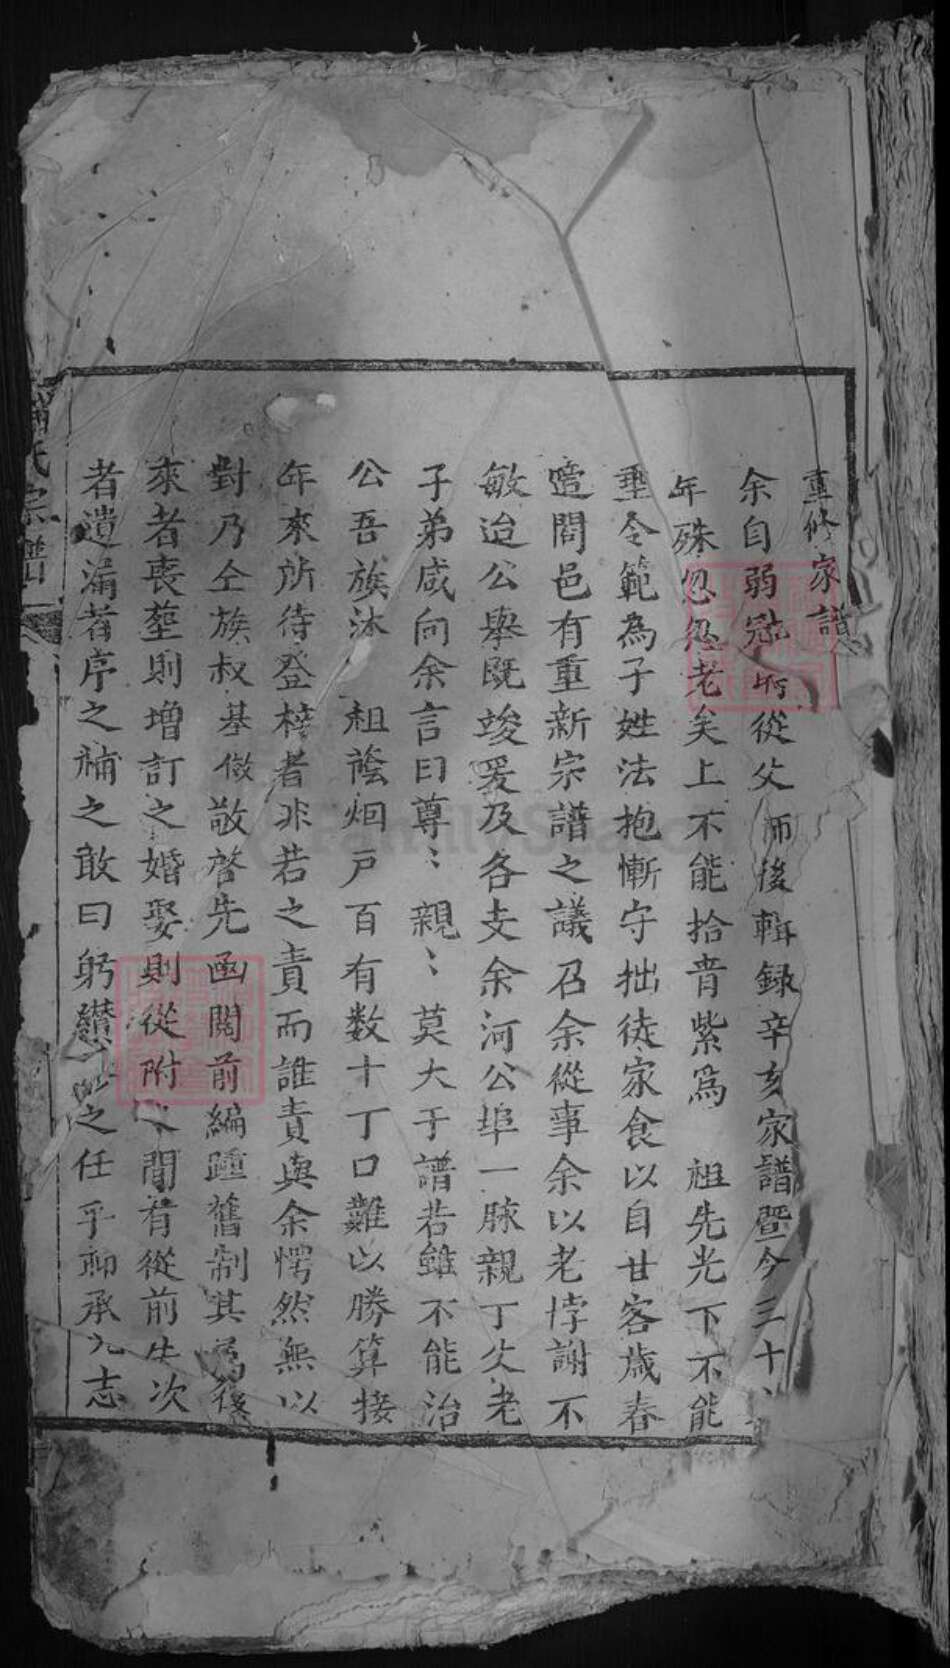 重修家譜
余自弱冠時從父師後輯録辛亥家譜暨今三十
年殊忽忽老矣上不能拾青紫爲 祖先光下不能
垂令範為子姓法抱慚守拙徒家食以自甘客歲春
噫閤邑有重新宗譜之議召余從事余以老悖謝不
敏迨公舉既竣爰及各支余河公埠一脉親丁父老
子弟咸向余言曰尊〻親〻莫大于譜若雖不能治
公吾族沐 祖蔭烟戸百有数十丁口難以勝算接
年來所待登梓者非若之責而誰責與余愕然無以
對乃仝族叔基做敬啓先函閲前編踵舊制其爲後
來者喪塟則增訂之婚娶則從附之間有從前失次
者遺漏者序之補之敢曰躬纘之任乎聊承先志
氏宗譜